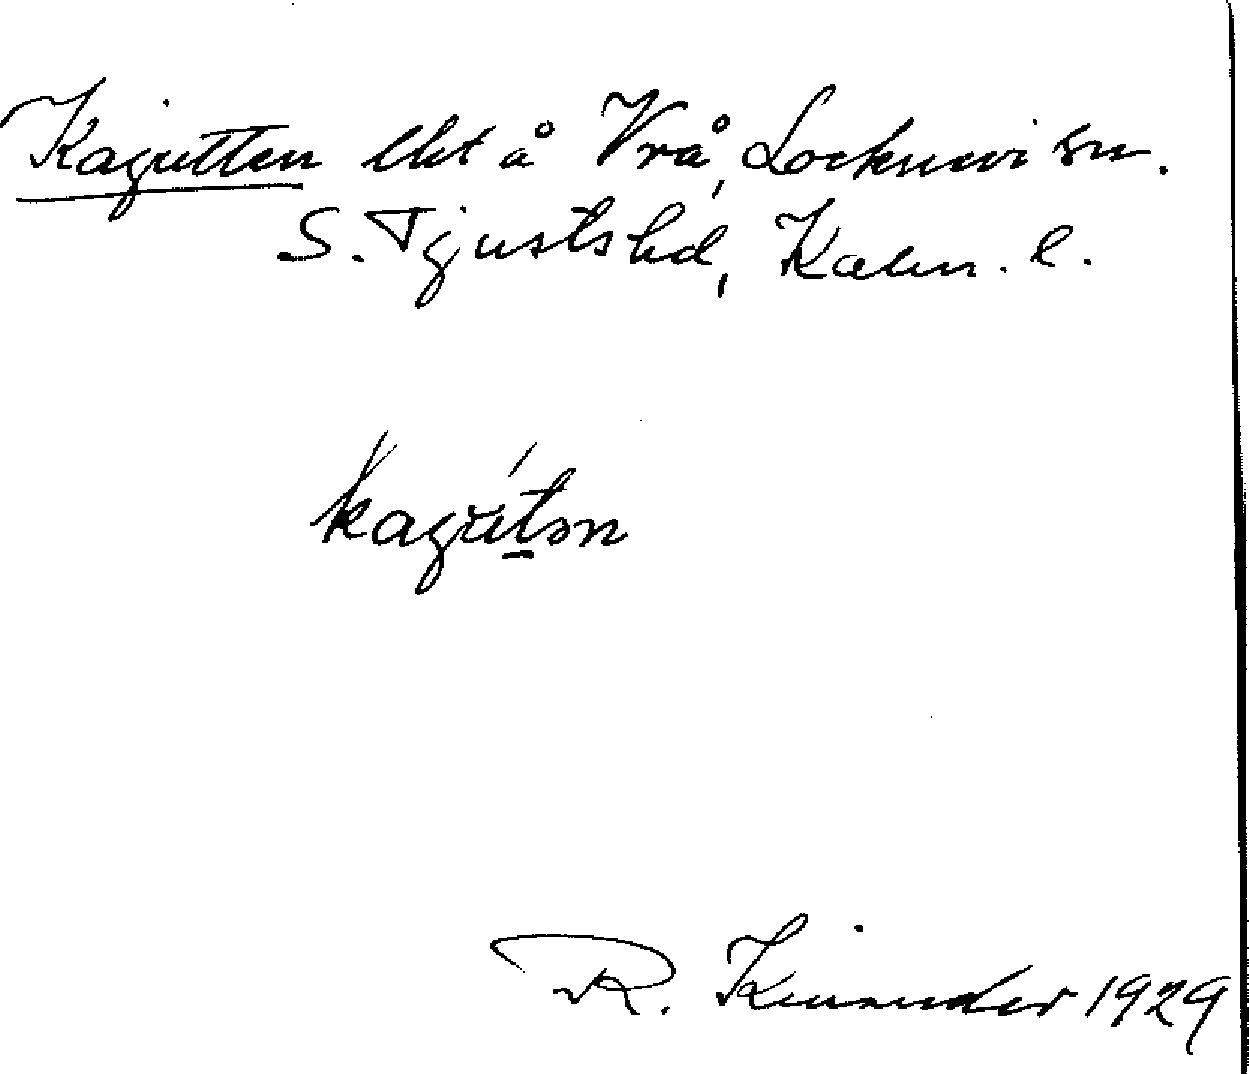 Kajutten lht å Vrå, Locknevi sn.
S. Tjustshd, Kalm. l.
kajùtən
R. Kinander 1929